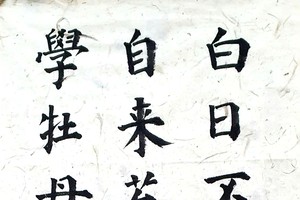 白日不
自来苔
學牡丹